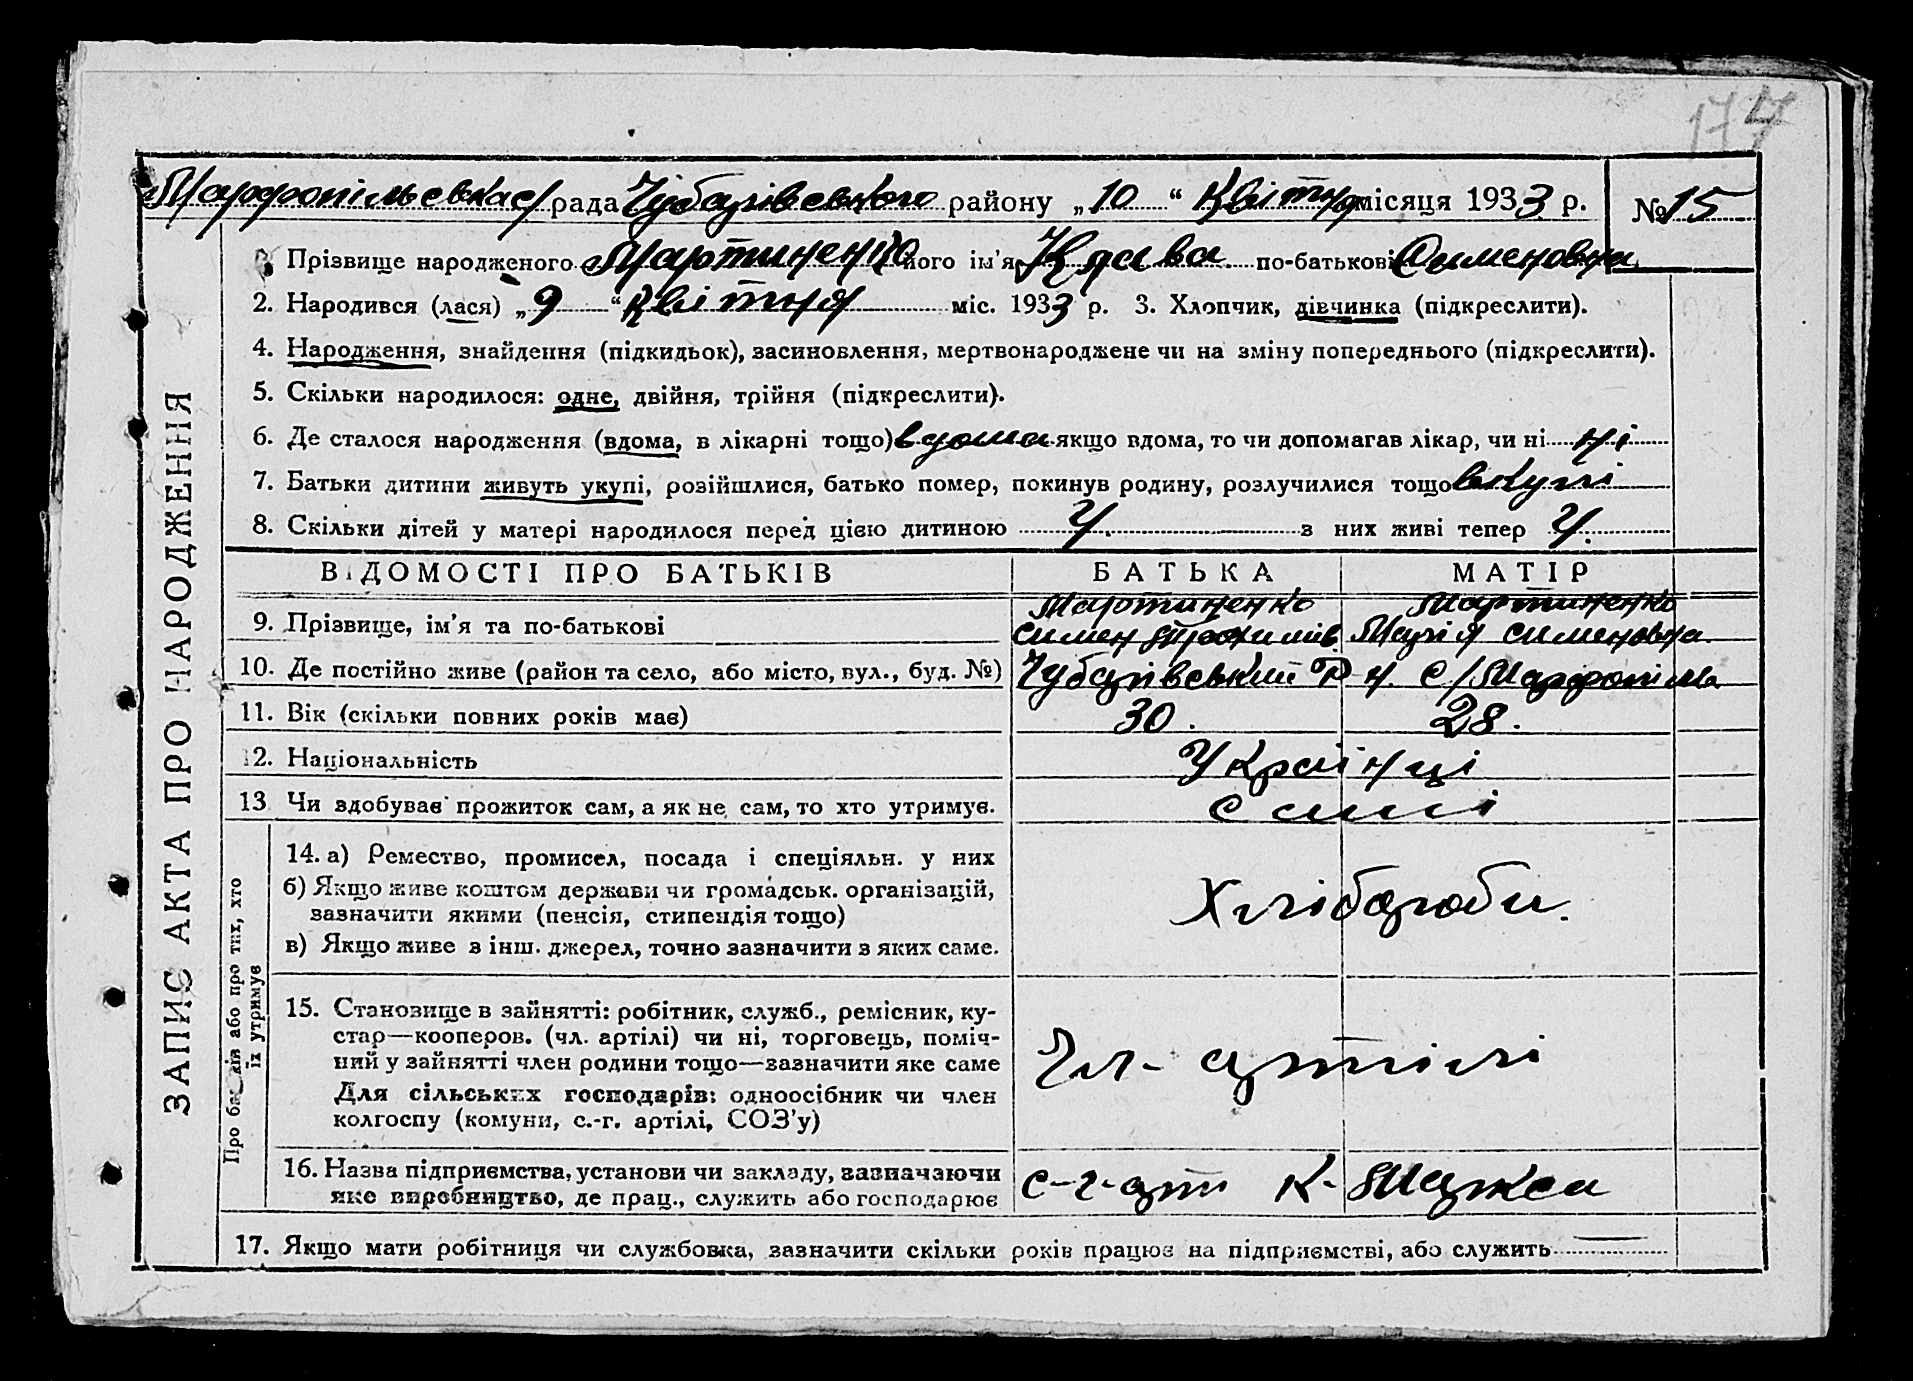 177
Марфопільська с/рада Чубарівського району „10“ Квітня місяця 1933 р. № 15
ЗАПИС АКТА ПРО НАРОДЖЕННЯ
1. Прізвище народженого Мартиненко його ім'я Клава по-батькові Сименовна
2. Народився (лася) „9“ Квітня міс. 1933 р. 3. Хлопчик, дівчинка (підкреслити).
4. Народження, знайдення (підкидьок), засиновлення, мертвонароджене чи на зміну попереднього (підкреслити).
5. Скільки народилося: одне, двійня, трійня (підкреслити).
6. Де сталося народження (вдома, в лікарні тощо) вдома якщо вдома, то чи допомагав лікар, чи ні ні
7. Батьки дитини живуть укупі, розійшлися, батько помер, покинув родину, розлучилися тощо вкупі
8. Скільки дітей у матері народилося перед цією дитиною з них живі тепер
ВІДОМОСТІ ПРО БАТЬКІВ БАТЬКА МАТІР
Мартиненко Мартиненко
9. Прізвище, ім'я та по-батькові Симен Марія Сименовна
10. Де постійно живе (район та село, або місто, вул., буд. №) Чубарівський Р н. С/Марфопіль
11. Вік (скільки повних років має) 30. 28.
12. Національність Українці
13 Чи здобуває прожиток сам, а як не сам, то хто утримує. Самі
Про батьків або про тих, хто
їх утримує
14. а) Ремество, промисел, посада і спеціяльн. у них
б) Якщо живе коштом держави чи громадськ. організацій,
зазначити якими (пенсія, стипендія тощо)
Хлібороби.
в) Якщо живе з інш. джерел, точно зазначити з яких саме.
15. Становище в зайнятті: робітник, служб., ремісник, ку-
стар—кооперов. (чл. артілі) чи ні, торговець, поміч-
ний у зайнятті член родини тощо—зазначити яке саме
Чл- артілі
Для сільських господарів: одноосібник чи член
колгоспу (комуни, с.-г. артілі, СОЗ'у)
16. Назва підприємства, установи чи закладу, зазначаючи
яке виробництво, де прац., служить або господарює
с-г-арт К-Маркса
17. Якщо мати робітниця чи службовка, зазначити скільки років працює на підприємстві, або служить